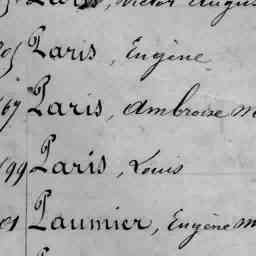 Paris, Victor Augus
Paris, Eugène
67 Paris, Ambroise M
99 Paris, Louis
Paumier, Eugène M